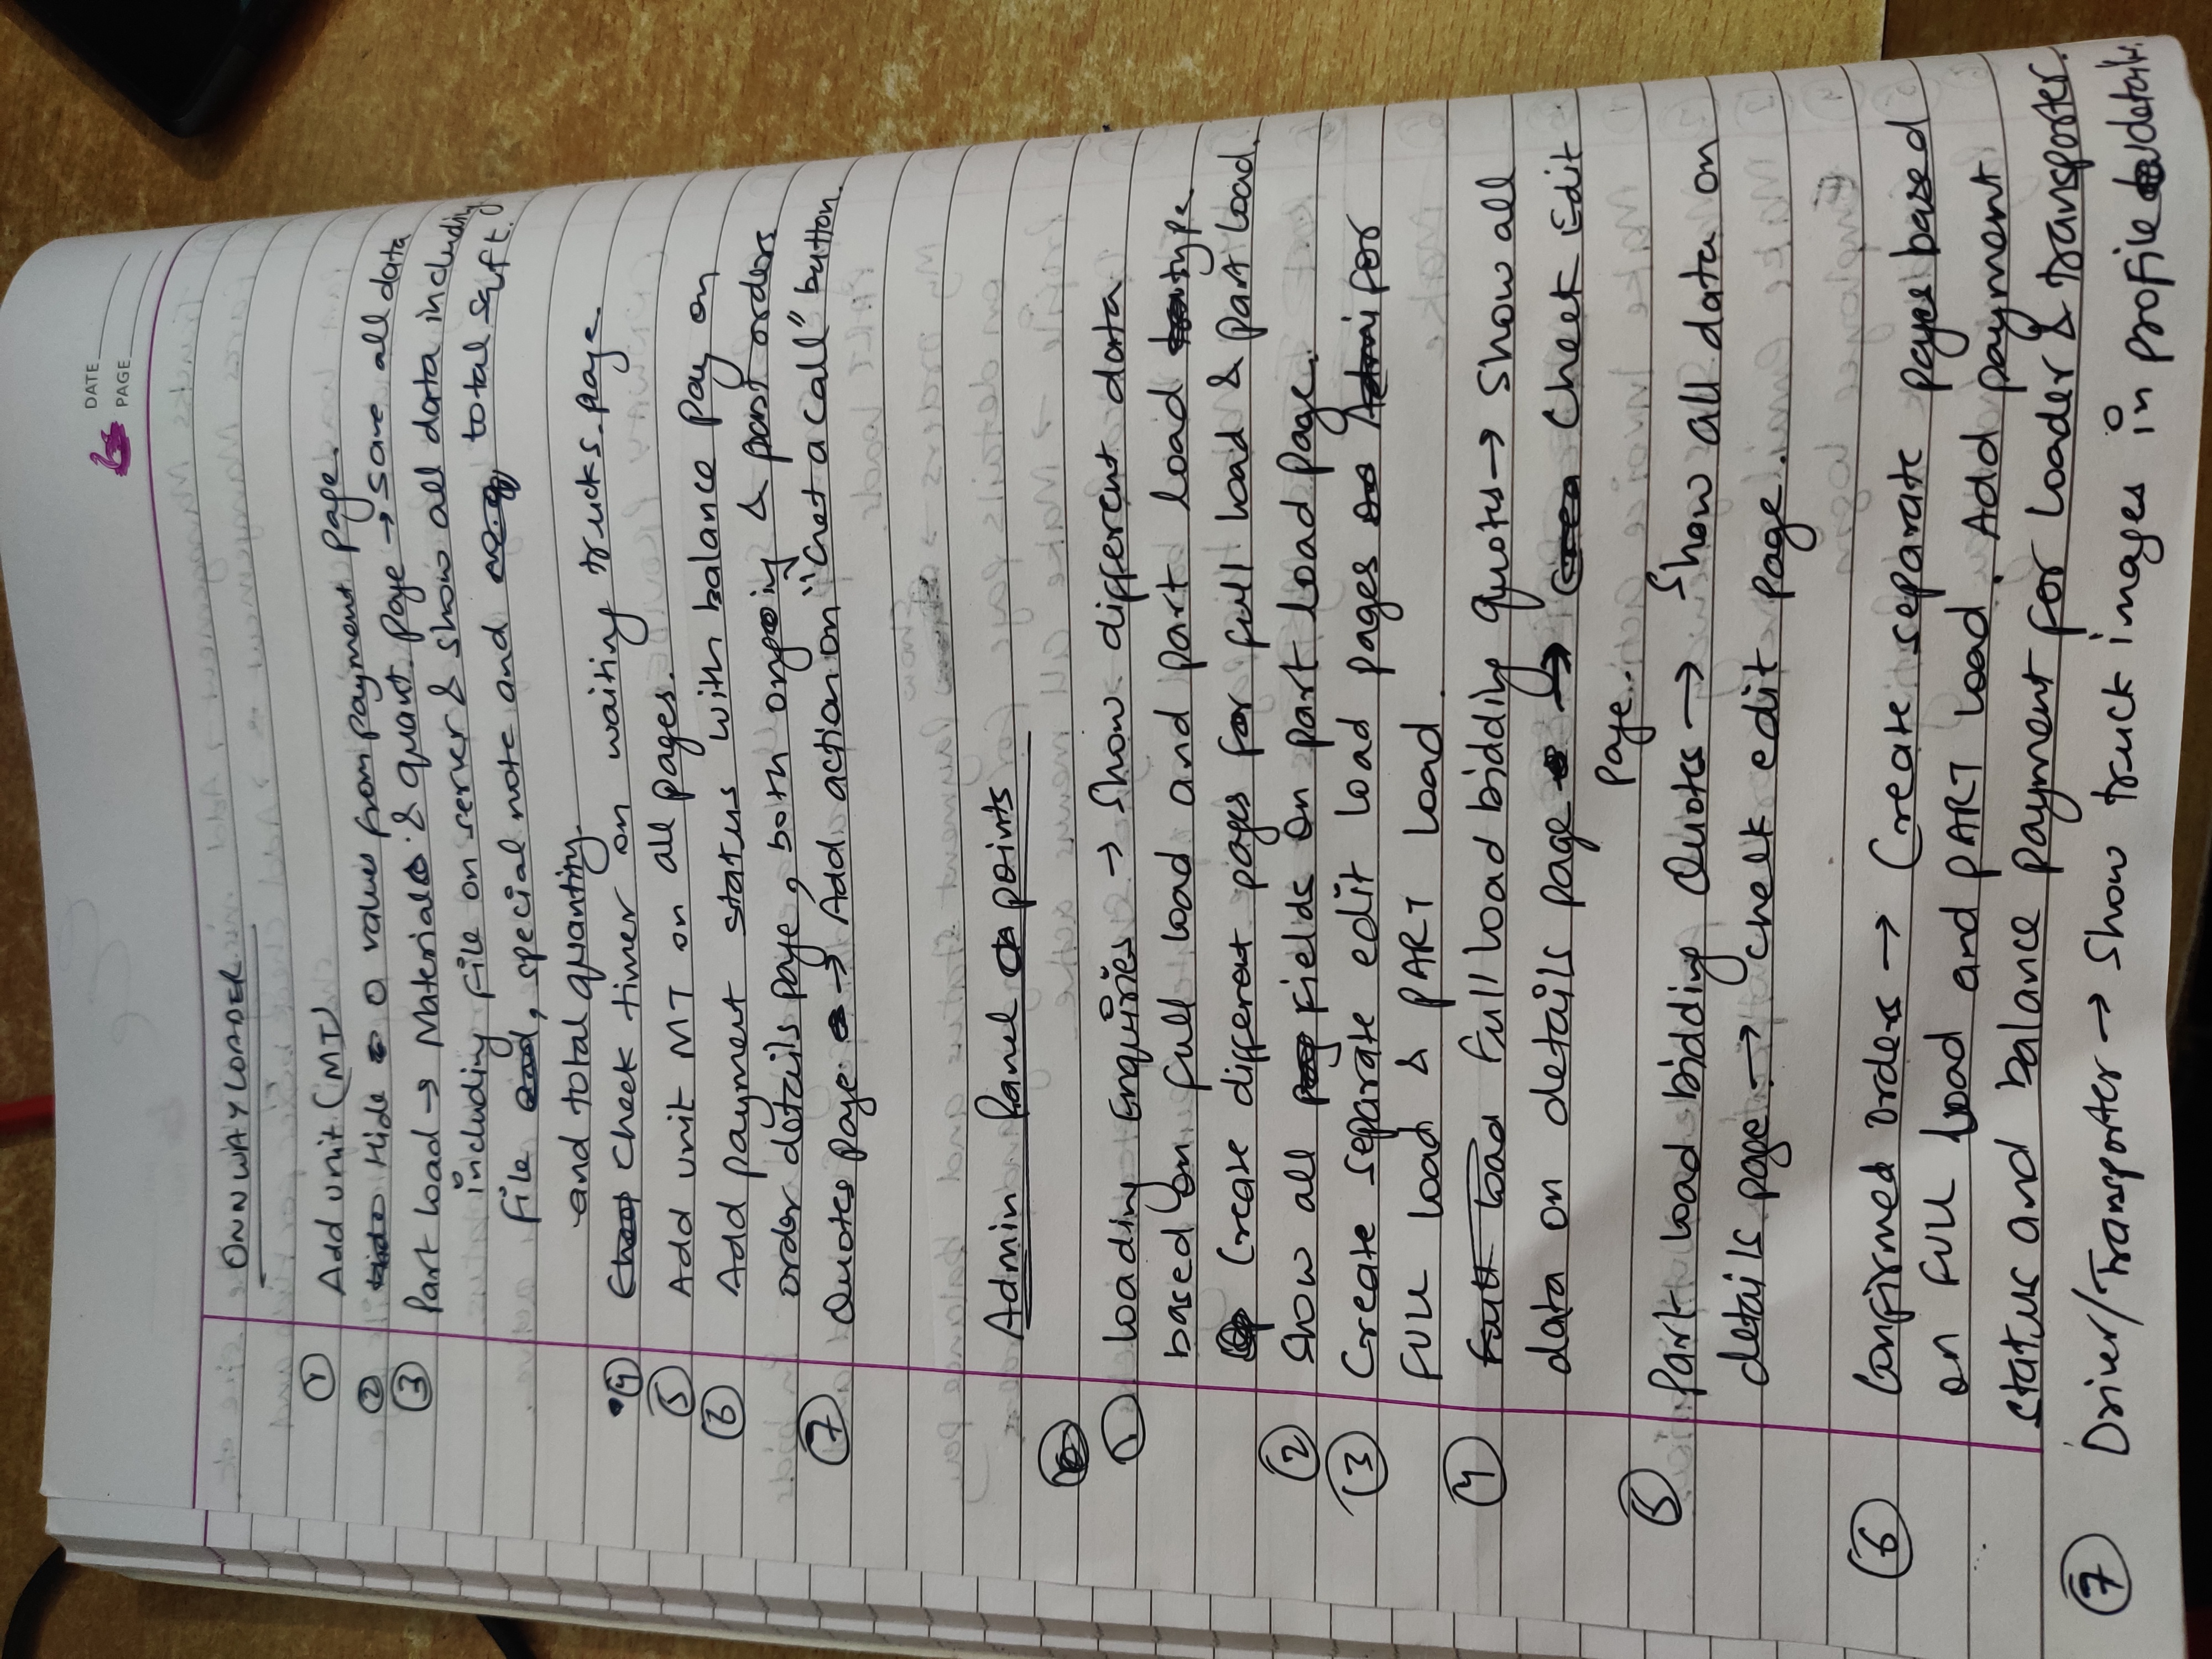 DATE
PAGE
ONNWAY LOADER
① Add unit (MT)
② Hide 0 values from payment page.
③ Part load → Material & quant. page → save all data
including file on server & show all data including
file, special note and total sqft.
and total quantity.
④ Check timer on waiting trucks page.
⑤ Add unit MT on all pages.
⑥ Add payment status with balance pay on
order details page, both ongoing & past orders
⑦ Quotes page → Add action on "Get a call" button.
Admin Panel points
① Loading Enquiries → Show different data
based on full load and part load type
Create different pages for full load & part load.
② Show all fields on part load page.
③ Create separate edit load pages for
FULL load & PART load.
④ Full load bidding quotes → Show all
data on details page → Check Edit
page.
⑤ Part load bidding Quotes → Show all data on
details page → check edit page.
⑥ Confirmed orders → Create separate pages based
on FULL load and PART load. Add payment
status and balance payment for loader & transporter.
⑦ Driver/Transporter → Show truck images in profile details.